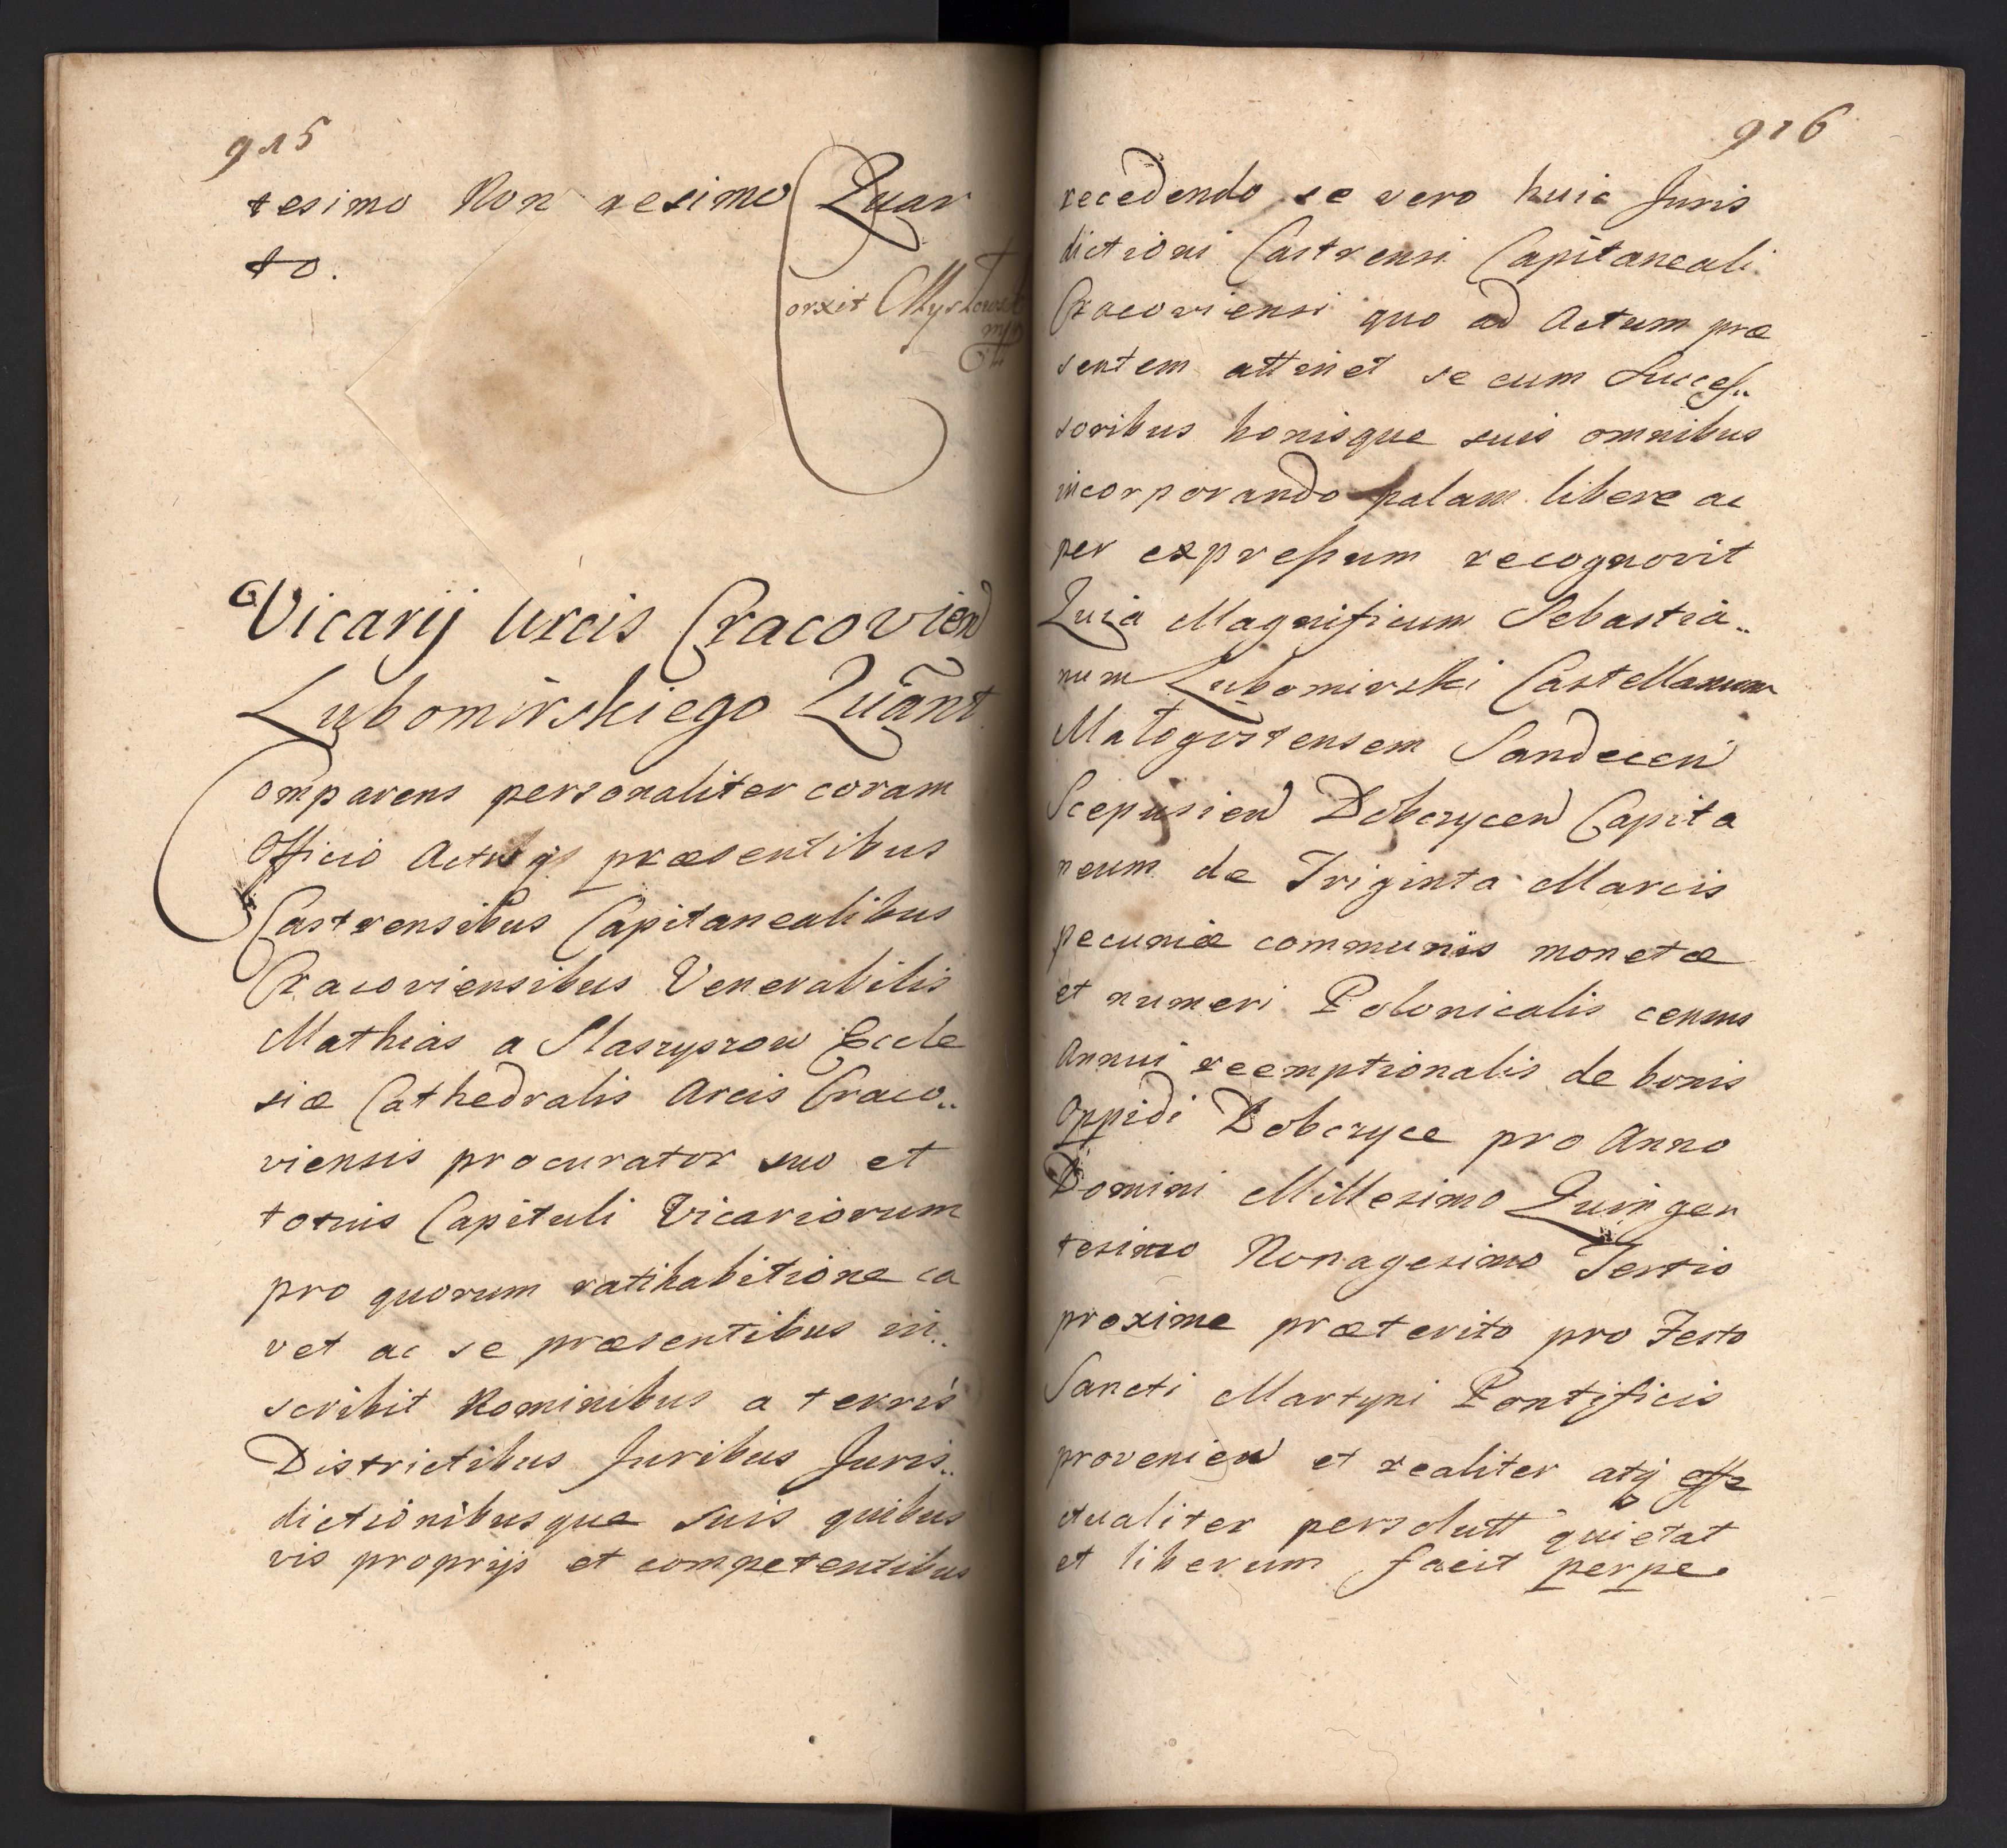 915
tesimo Non gesimo Quar
to.
orxit
Vicarij Arcis Cracovien
Lubomirskiego Quant
Comparens personaliter coram
Officio Actisqs præsentibus
Castrensibus Capitanealibus
Cracoviensibus Venerabilis
Mathias a Staszyszow Eccle
siæ Cathedralis Arcis Craco..
viensis procurator suo et
totius Capituli Vicariorum
pro quorum ratihabitione ca
vet ac se præsentibus in..
scribit Nominibus a terris
Districtibus Juribus Juris..
dictionibusque suis quibus
vis proprijs et competentibus
916
recedendo se vero huic Juris
dictioni Castrensi Capitaneali
Cracoviensi quo ad Actum præ
sentem attinet se cum Succes..
soribus bonisque suis omnibus
incorporando palam libere ac
per expressum recognovit
Quia Magnificum Sebastia..
num Lubomirski Castellanum
Małogostensem Sandecen
Scepusien Dobczycen Capita
neum de Triginta Marcis
pecuniæ communis monetæ
et numeri Polonicalis census
Annui reemptionalis de bonis
Oppidi Dobczyce pro Anno
Domini Millesimo Quingen
tesimo Nonagesimo Tertio
proxime præterito pro Festo
Sancti Martyni Pontificis
provenien et realiter atq effe
ctualiter persolutt quietat
et liberum facit perpe